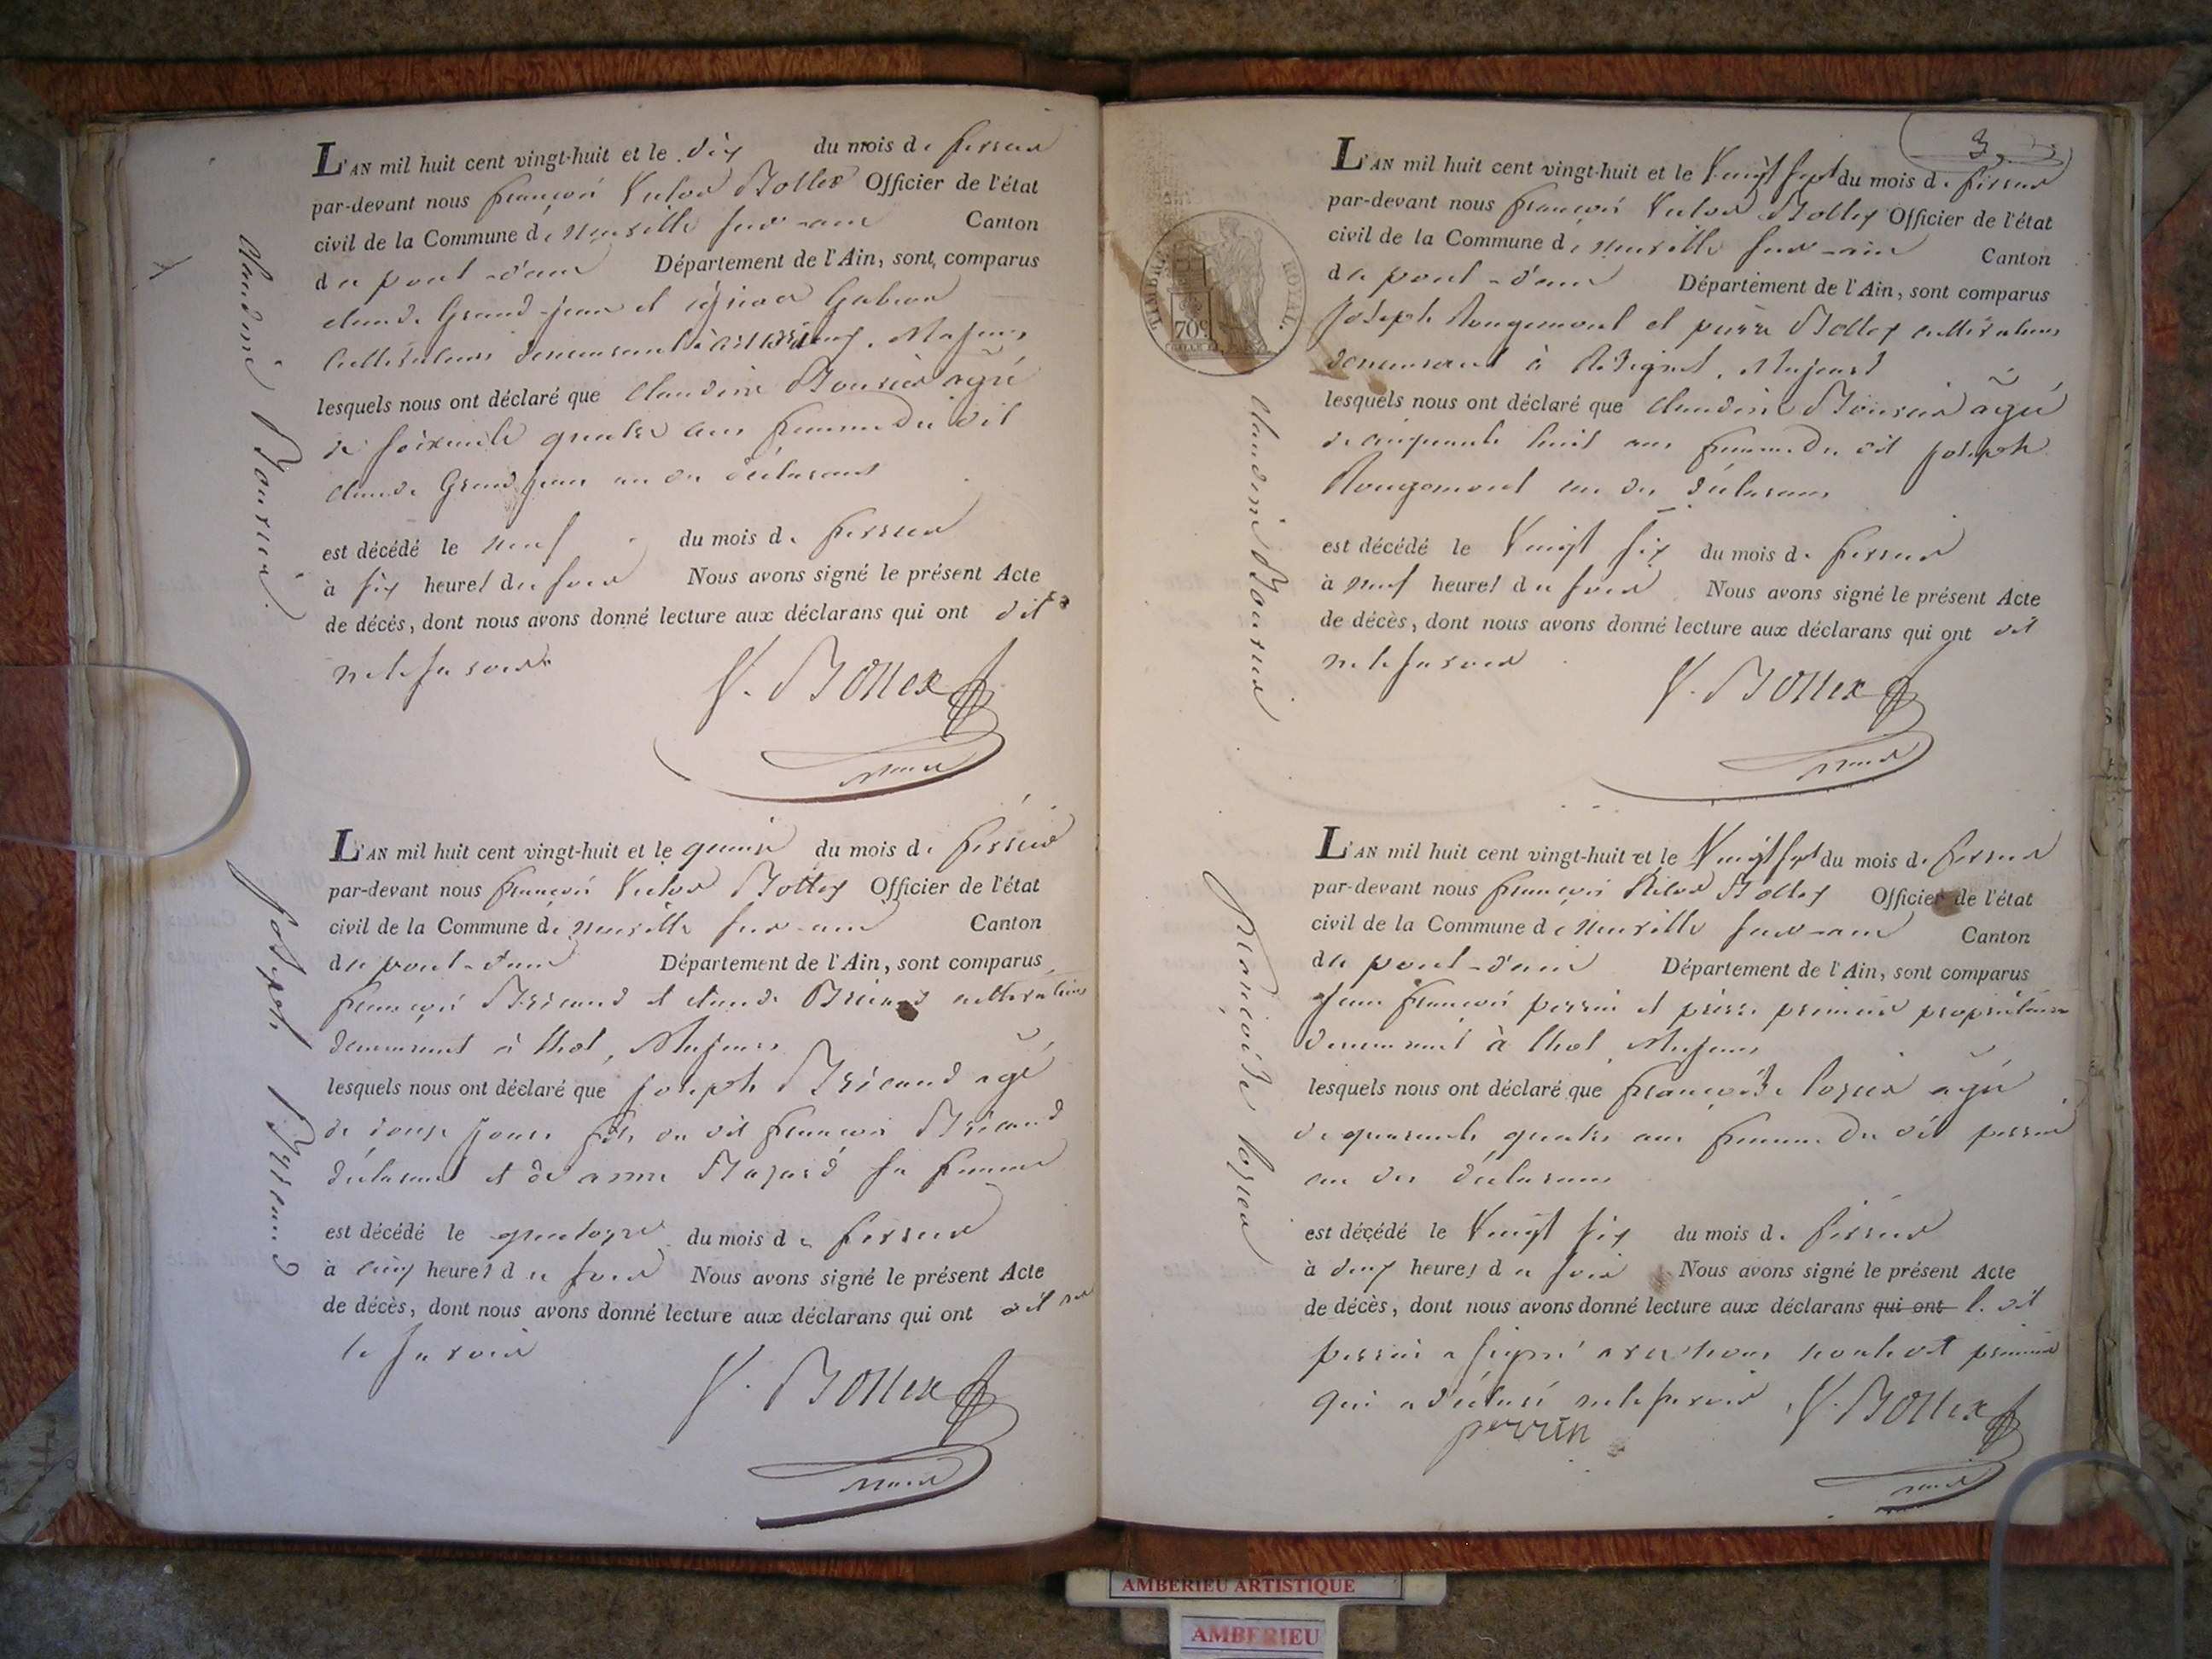 Claudine Bouvier
L'AN mil huit cent vingt-huit et le dix du mois de fevrier
par-devant nous françois Victor Bottex Officier de l'état
civil de la Commune de neuville sur-ain Canton
de pont-d'ain Département de l'Ain, sont comparus
claude Grand-jean et Gabion
cultivateurs demeurant à Majeurs
lesquels nous ont déclaré que claudine Bouvier agée
de soixante quatre ans femme du dit
claude Grand jean un des déclarans
est décédé le neuf du mois de fevrier
à six heures du soir Nous avons signé le présent Acte
de décès, dont nous avons donné lecture aux déclarans qui ont dit
ne le savoir
V. Bottex
maire
Joseph Briand
L'AN mil huit cent vingt-huit et le quinze du mois de fevrier
par-devant nous françois Victor Bottex Officier de l'état
civil de la Commune de neuville sur-ain Canton
de pont-d'ain Département de l'Ain, sont comparus
françois et claude cultivateurs
demeurant à thol, Majeurs
lesquels nous ont déclaré que joseph agé
de douze jours fils du dit françois
déclarant et de anne sa femme
est décédé le quatorze du mois de fevrier
à cinq heures du soir Nous avons signé le présent Acte
de décès, dont nous avons donné lecture aux déclarans qui ont dit ne
le savoir
V. Bottex
maire
3
TIMBRE ROYAL.
70c
Claudine Bouvier
L'AN mil huit cent vingt-huit et le Vingt sept du mois de fevrier
par-devant nous françois Victor Bottex Officier de l'état
civil de la Commune de neuville sur-ain Canton
de pont-d'ain Département de l'Ain, sont comparus
joseph Rougemont et pierre Bottex cultivateurs
demeurant à Resignel, Majeurs
lesquels nous ont déclaré que claudine Bouvier agée
de cinquante huit ans femme du dit joseph
Rougemont un des déclarans
est décédé le Vingt six du mois de fevrier
à neuf heures du soir Nous avons signé le présent Acte
de décès, dont nous avons donné lecture aux déclarans qui ont dit
ne le savoir
V. Bottex
maire
françoise lozier
L'AN mil huit cent vingt-huit et le Vingt sept du mois de fevrier
par-devant nous françois Victor Bottex Officier de l'état
civil de la Commune de neuville sur-ain Canton
de pont-d'ain Département de l'Ain, sont comparus
Jean françois perrin et pierre propriétaires
demeurant à thol, Majeurs
lesquels nous ont déclaré que françoise lozier agée
de quarante quatre ans femme du dit perrin
un des déclarans
est décédé le Vingt six du mois de fevrier
à deux heures du soir Nous avons signé le présent Acte
de décès, dont nous avons donné lecture aux déclarans qui ont le dit
perrin a signé avec nous
qui a déclaré ne le savoir V. Bottex
perrin
maire
AMBERIEU ARTISTIQUE
AMBERIEU